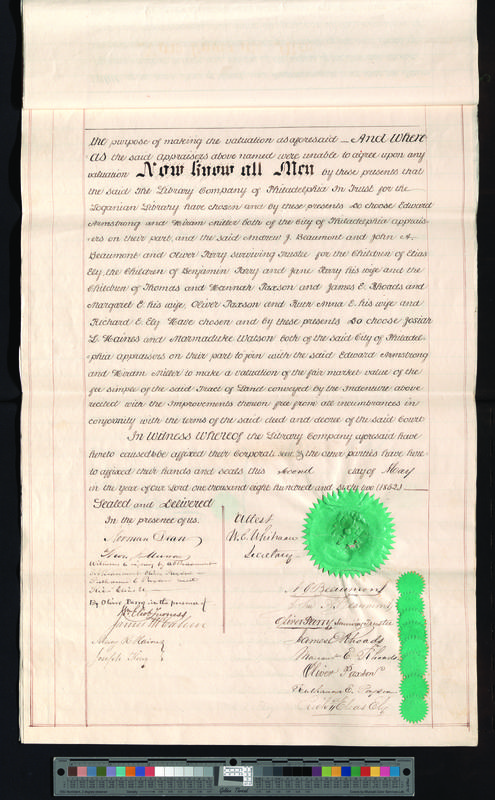 the purpose of making the valuation as aforesaid — And Where
as the said appraisers above named were unable to agree upon any
valuation Now know all Men by these presents that
the said The Library Company of Philadelphia In Trust for the
Loganian Library have chosen and by these presents do choose Edward
Armstrong and Hiram Miller both of the City of Philadelphia apprais-
ers on their part, and the said Andrew J. Beaumont and John A.
Beaumont and Oliver Parry surviving Trustee for the Children of Elias
Ely, the Children of Benjamin Parry and Jane Parry his wife and the
Children of Thomas and Hannah Paxson and James E. Rhoads and
Margaret E. his wife, Oliver Paxson and Ruth Anna E. his wife and
Richard E. Ely Have chosen and by these presents do choose Josiah
L. Haines and Marmaduke Watson both of the said City of Philadel-
-phia appraisers on their part to join with the said Edward Armstrong
and Hiram Miller to make a valuation of the fair market value of the
fee simple of the said Tract of Land conveyed by the Indenture above
recited with the Improvements thereon free from all incumbrances in
conformity with the terms of the said deed and decree of the said Court
In Witness Whereof the Library Company aforesaid have
hereto caused to be affixed their Corporate seal & the other parties have here
to affixed their hands and seals this second day of May
in the year of our Lord one thousand eight hundred and sixty two (1862)
Sealed and Delivered
In the presence of us.
Attest
Secretary
By Oliver Parry in the presence of
Beaumont
Oliver Parry Surviving Trustee
Samuel Rhoads
E. Rhoads
Oliver Paxson
E. Paxson